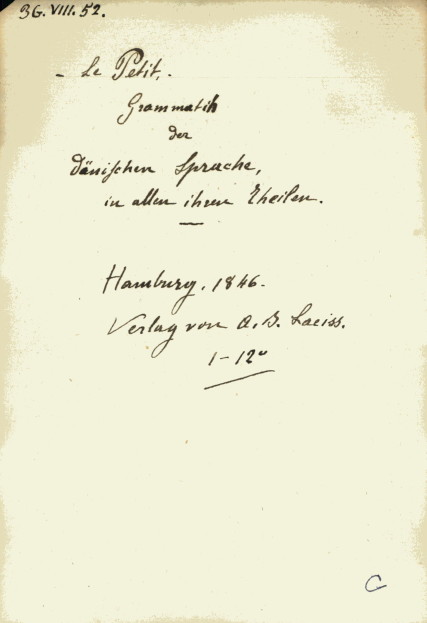 36. VIII. 52.
- Le Petit.
Grammatik
der
dänischen Sprache,
in allen ihren Theilen.
Hamburg. 1846.
Verlag von A. B. Laeiss.
1-12°
C